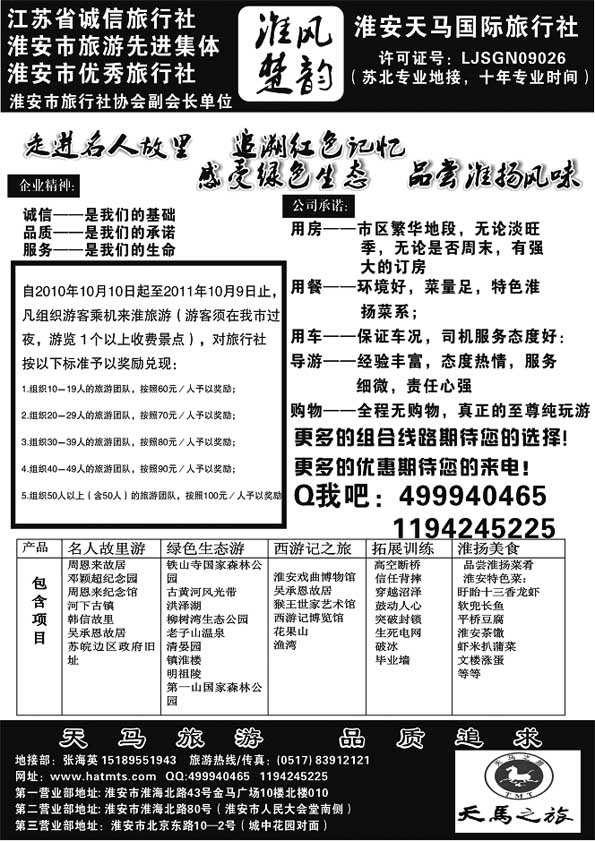 江苏省诚信旅行社
淮安市旅游先进集体
淮安市优秀旅行社
淮安市旅行社协会副会长单位
淮风
楚韵
淮安天马国际旅行社
许可证号：LJSGN09026
（苏北专业地接，十年专业时间）
走进名人故里 追溯红色记忆
感受绿色生态 品尝淮扬风味
企业精神:
诚信——是我们的基础
品质——是我们的承诺
服务——是我们的生命
自2010年10月10日起至2011年10月9日止，
凡组织游客乘机来淮旅游（游客须在我市过
夜，游览１个以上收费景点），对旅行社
按以下标准予以奖励兑现：
1.组织10—19人的旅游团队，按照60元／人予以奖励；
2.组织20—29人的旅游团队，按照70元／人予以奖励；
3.组织30—39人的旅游团队，按照80元／人予以奖励；
4.组织40—49人的旅游团队，按照90元／人予以奖励；
5.组织50人以上（含50人）的旅游团队，按照100元／人予以奖励
公司承诺:
用房——市区繁华地段，无论淡旺
季，无论是否周末，有强
大的订房
用餐——环境好，菜量足，特色淮
扬菜系；
用车——保证车况，司机服务态度好：
导游——经验丰富，态度热情，服务
细微，责任心强
购物——全程无购物，真正的至尊纯玩游
更多的组合线路期待您的选择!
更多的优惠期待您的来电!
Q我吧：499940465
1194245225
产品 名人故里游 绿色生态游 西游记之旅 拓展训练 淮扬美食
包含项目
周恩来故居
邓颖超纪念园
周恩来纪念馆
河下古镇
韩信故里
吴承恩故居
苏皖边区政府旧
址
铁山寺国家森林公
园
古黄河风光带
洪泽湖
柳树湾生态公园
老子山温泉
清晏园
镇淮楼
明祖陵
第一山国家森林公
园
淮安戏曲博物馆
吴承恩故居
猴王世家艺术馆
西游记博览馆
花果山
渔湾
高空断桥
信任背摔
穿越沼泽
鼓动人心
突破封锁
生死电网
破冰
毕业墙
品尝淮扬菜肴
淮安特色菜：
盱眙十三香龙虾
软兜长鱼
平桥豆腐
淮安茶馓
虾米扒蒲菜
文楼涨蛋
等等
天马旅游 品质追求
地接部：张海英 15189551943 旅游热线/传真：(0517) 83912121
网址：www.hatmts.com QQ:499940465 1194245225
第一营业部地址：淮安市淮海北路43号金马广场10楼北楼010
第二营业部地址: 淮安市淮海北路80号（淮安市人民大会堂南侧）
第三营业部地址：淮安市北京东路10—2号（城中花园对面）
天马之旅
TMT
天馬之旅